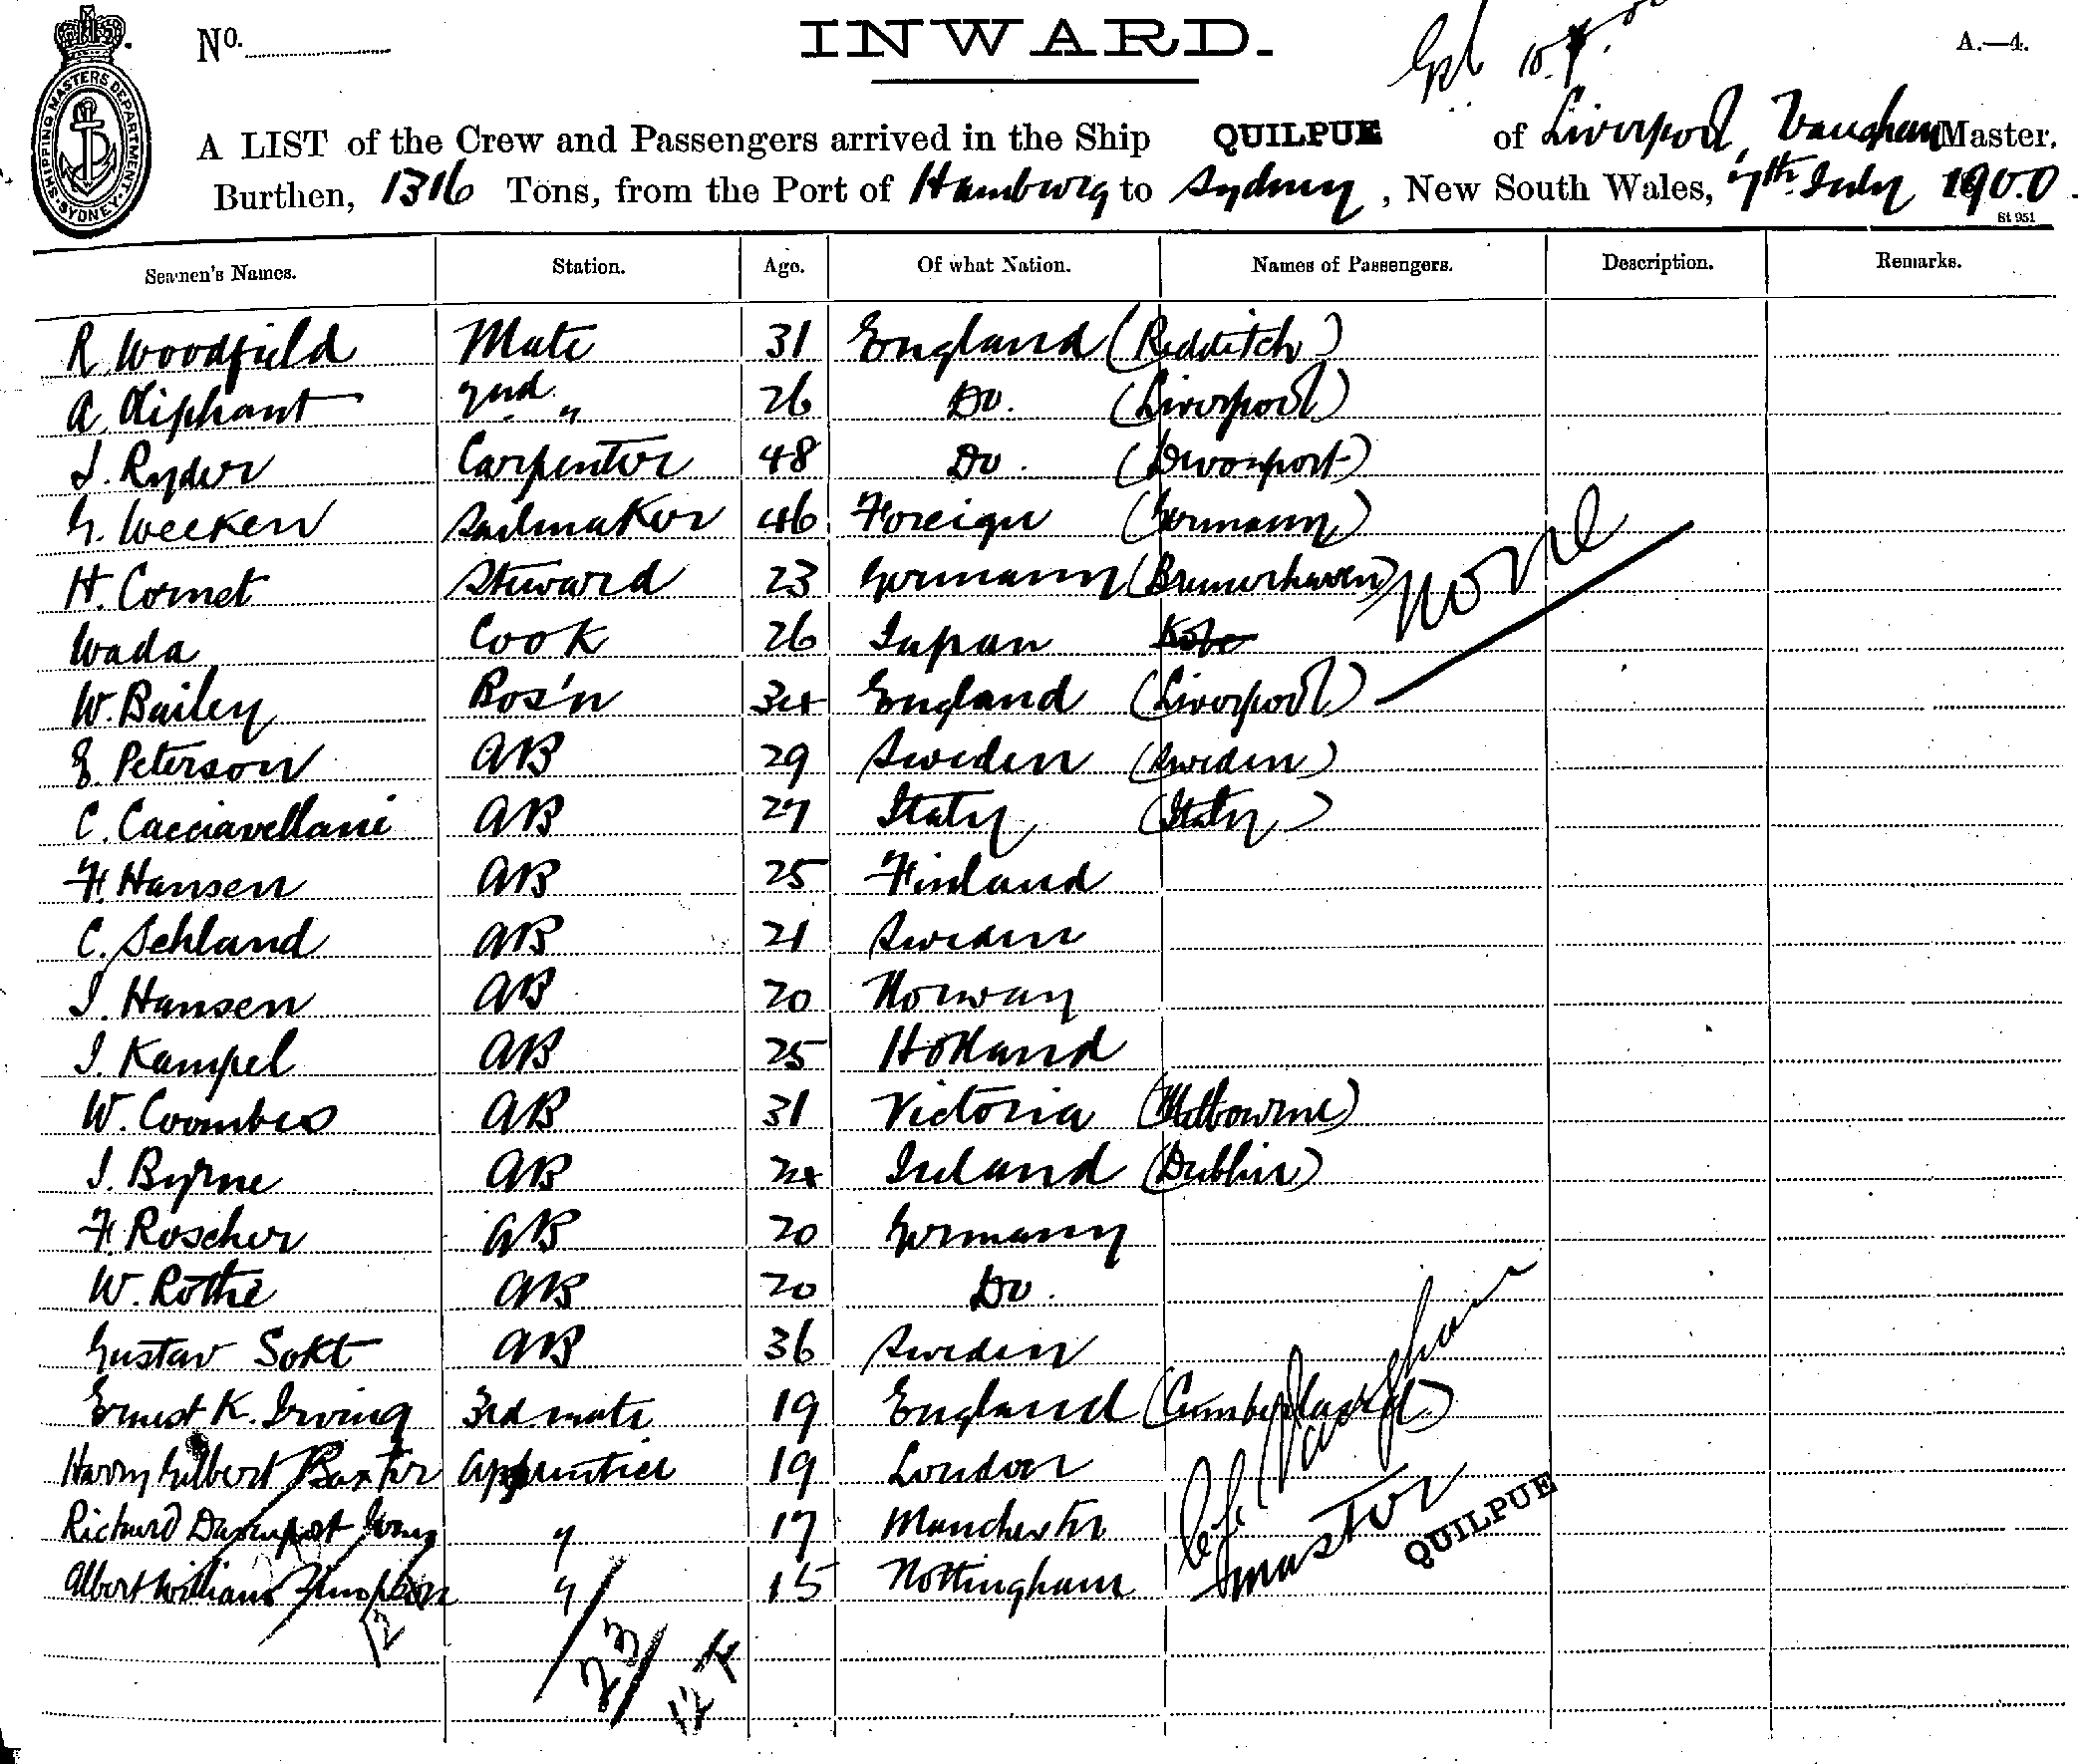 No. INWARD. A.—4.
SHIPPING MASTERS DEPARTMENT · SYDNEY ·
A LIST of the Crew and Passengers arrived in the Ship QUILPUE of Liverpool, Vaughan Master,
Burthen, 1316 Tons, from the Port of Hamburg to Sydney, New South Wales, 7th July 1900
St 951
Seamen's Names. Station. Age. Of what Nation. Names of Passengers. Description. Remarks.
R. Woodfield Mate 31 England (Redditch)
A. Oliphant 2nd " 26 Do. (Liverpool)
J. Ryder Carpenter 48 Do. (Devonport)
G. Weeken Sailmaker 46 Foreign (Germany)
H. Cornet Steward 23 Germany (Bremerhaven)
None
Wada Cook 26 Japan Kobe
W. Bailey Bos'n 34 England (Liverpool)
E. Peterson AB 29 Sweden (Sweden)
C. Cacciavellani AB 27 Italy (Italy)
F. Hansen AB 25 Finland
C. Sehland AB 21 Sweden
J. Hansen AB 20 Norway
J. Kampel AB 25 Holland
W. Coombes AB 31 Victoria (Melbourne)
J. Byrne AB 24 Ireland (Dublin)
F. Roscher AB 20 Germany
W. Rothe AB 20 Do.
Gustav Sokt AB 36 Sweden
Ernest K. Irving 3rd mate 19 England (Cumberland)
Harry Gilbert Baxter Apprentice 19 London
Richard Davenport Jones " 17 Manchester
Albert William Simpson " 15 Nottingham
Vaughan
Master
QUILPUE
23
12